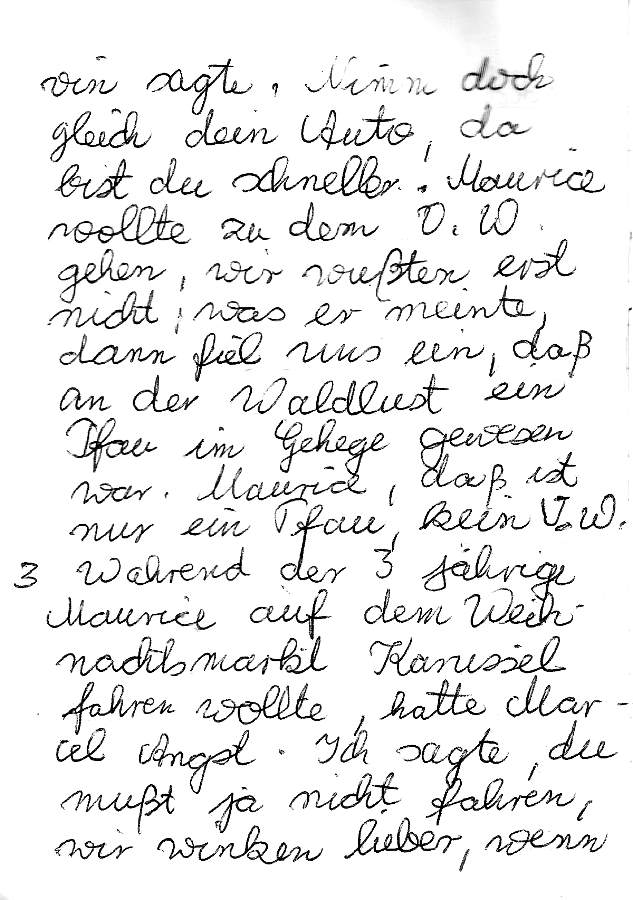 vin sagte, Nimm doch
gleich dein Auto, da
bist du schneller. Maurice
wollte zu dem V. W.
gehen, wir wußten erst
nicht, was er meinte,
dann fiel uns ein, daß
an der Waldlust ein
Pfau im Gehege gewesen
war. Maurice, daß ist
nur ein Pfau, kein V.W.
3 Wahrend der 3 jährige
Maurice auf dem Weih-
nachtsmarkt Karussel
fahren wollte, hatte Mar-
cel Angst. Ich sagte, du
mußt ja nicht fahren,
wir winken lieber, wenn